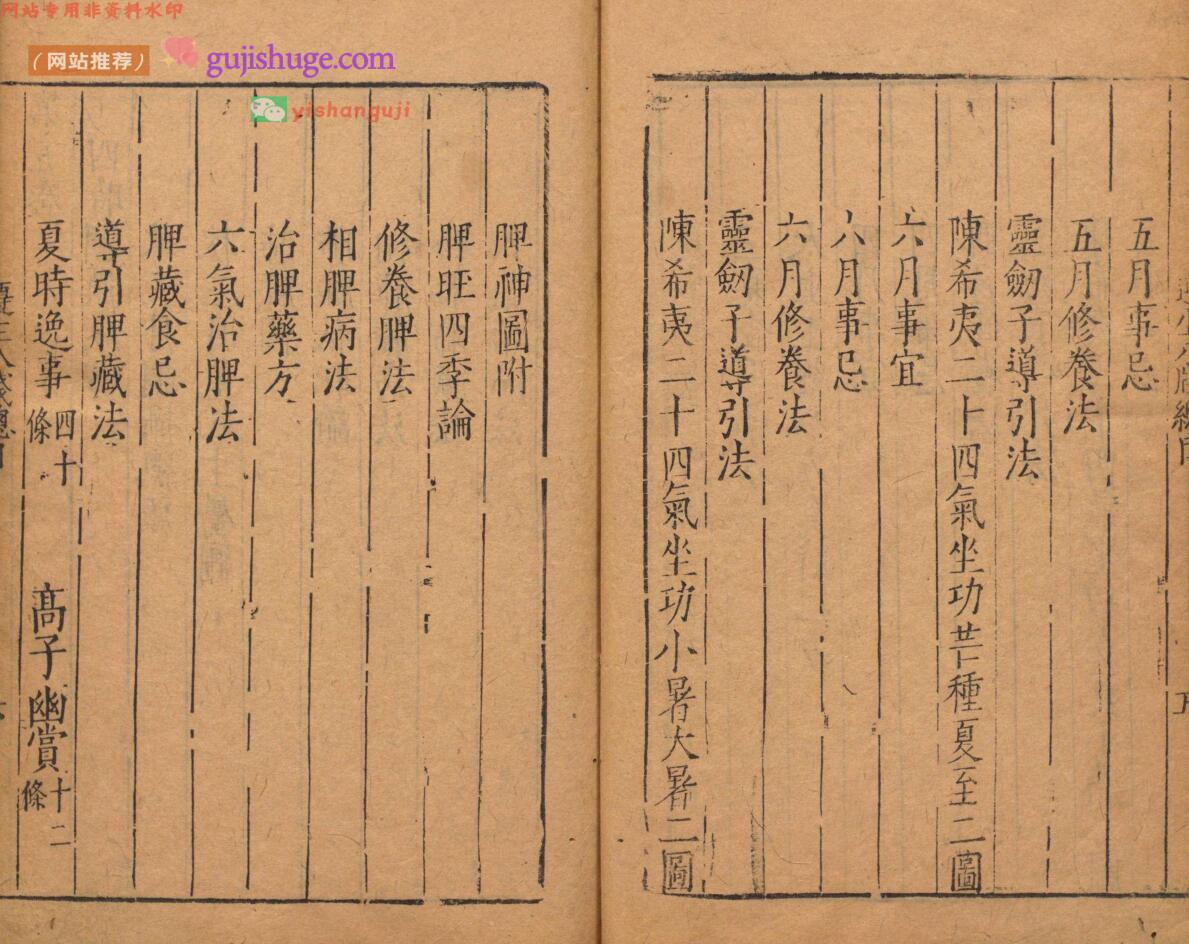 网站专用非资料水印
（网站推荐）
gujishuge.com
yishanguji
五月事忌
五月修養法
靈劒子導引法
陳希夷二十四氣坐功芒種夏至二圖
六月事宜
六月事忌
六月修養法
靈劒子導引法
陳希夷二十四氣坐功小暑大暑二圖
脾神圖附
脾旺四季論
修養脾法
相脾病法
治脾藥方
六氣治脾法
脾藏食忌
導引脾藏法
夏時逸事四十條　高子幽賞十二條